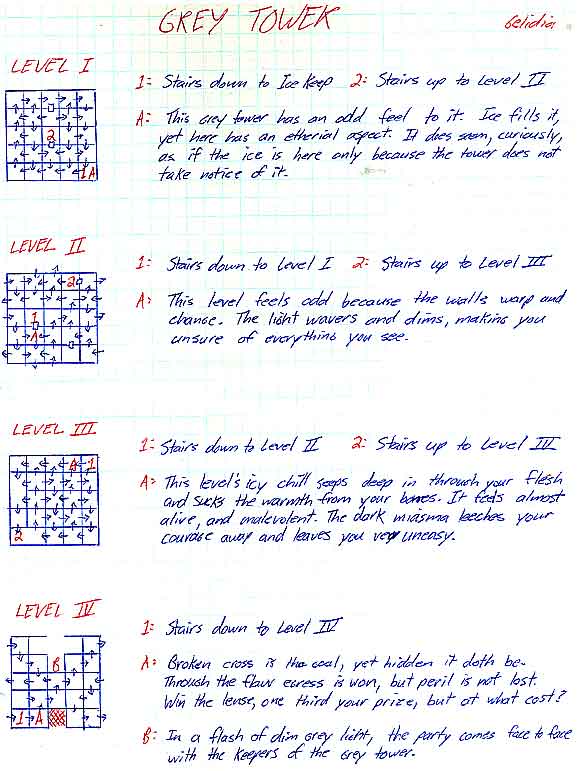 GREY TOWER
Gelidia
LEVEL I
1: Stairs down to Ice Keep 2: Stairs up to Level II
A: This grey tower has an odd feel to it. Ice fills it,
yet here has an etherial aspect. It does seem, curiously,
as if the ice is here only because the tower does not
take notice of it.
2
1A
LEVEL II
1: Stairs down to Level I 2: Stairs up to Level III
A: This level feels odd because the walls warp and
change. The light wavers and dims, making you
unsure of everything you see.
2
1
A
LEVEL III
1: Stairs down to Level II 2: Stairs up to Level IV
A: This level's icy chill seeps deep in through your flesh
and sucks the warmth from your bones. It feels almost
alive, and malevolent. The dark miasma leeches your
courage away and leaves you very uneasy.
A 1
2
LEVEL IV
1: Stairs down to Level IV
A: Broken cross is the goal, yet hidden it doth be-
Through the flaw egress is won, but peril is not lost.
Win the lense, one third your prize, but at what cost?
B: In a flash of dim grey light, the party comes face to face
with the Keepers of the Grey tower.
B
1 A